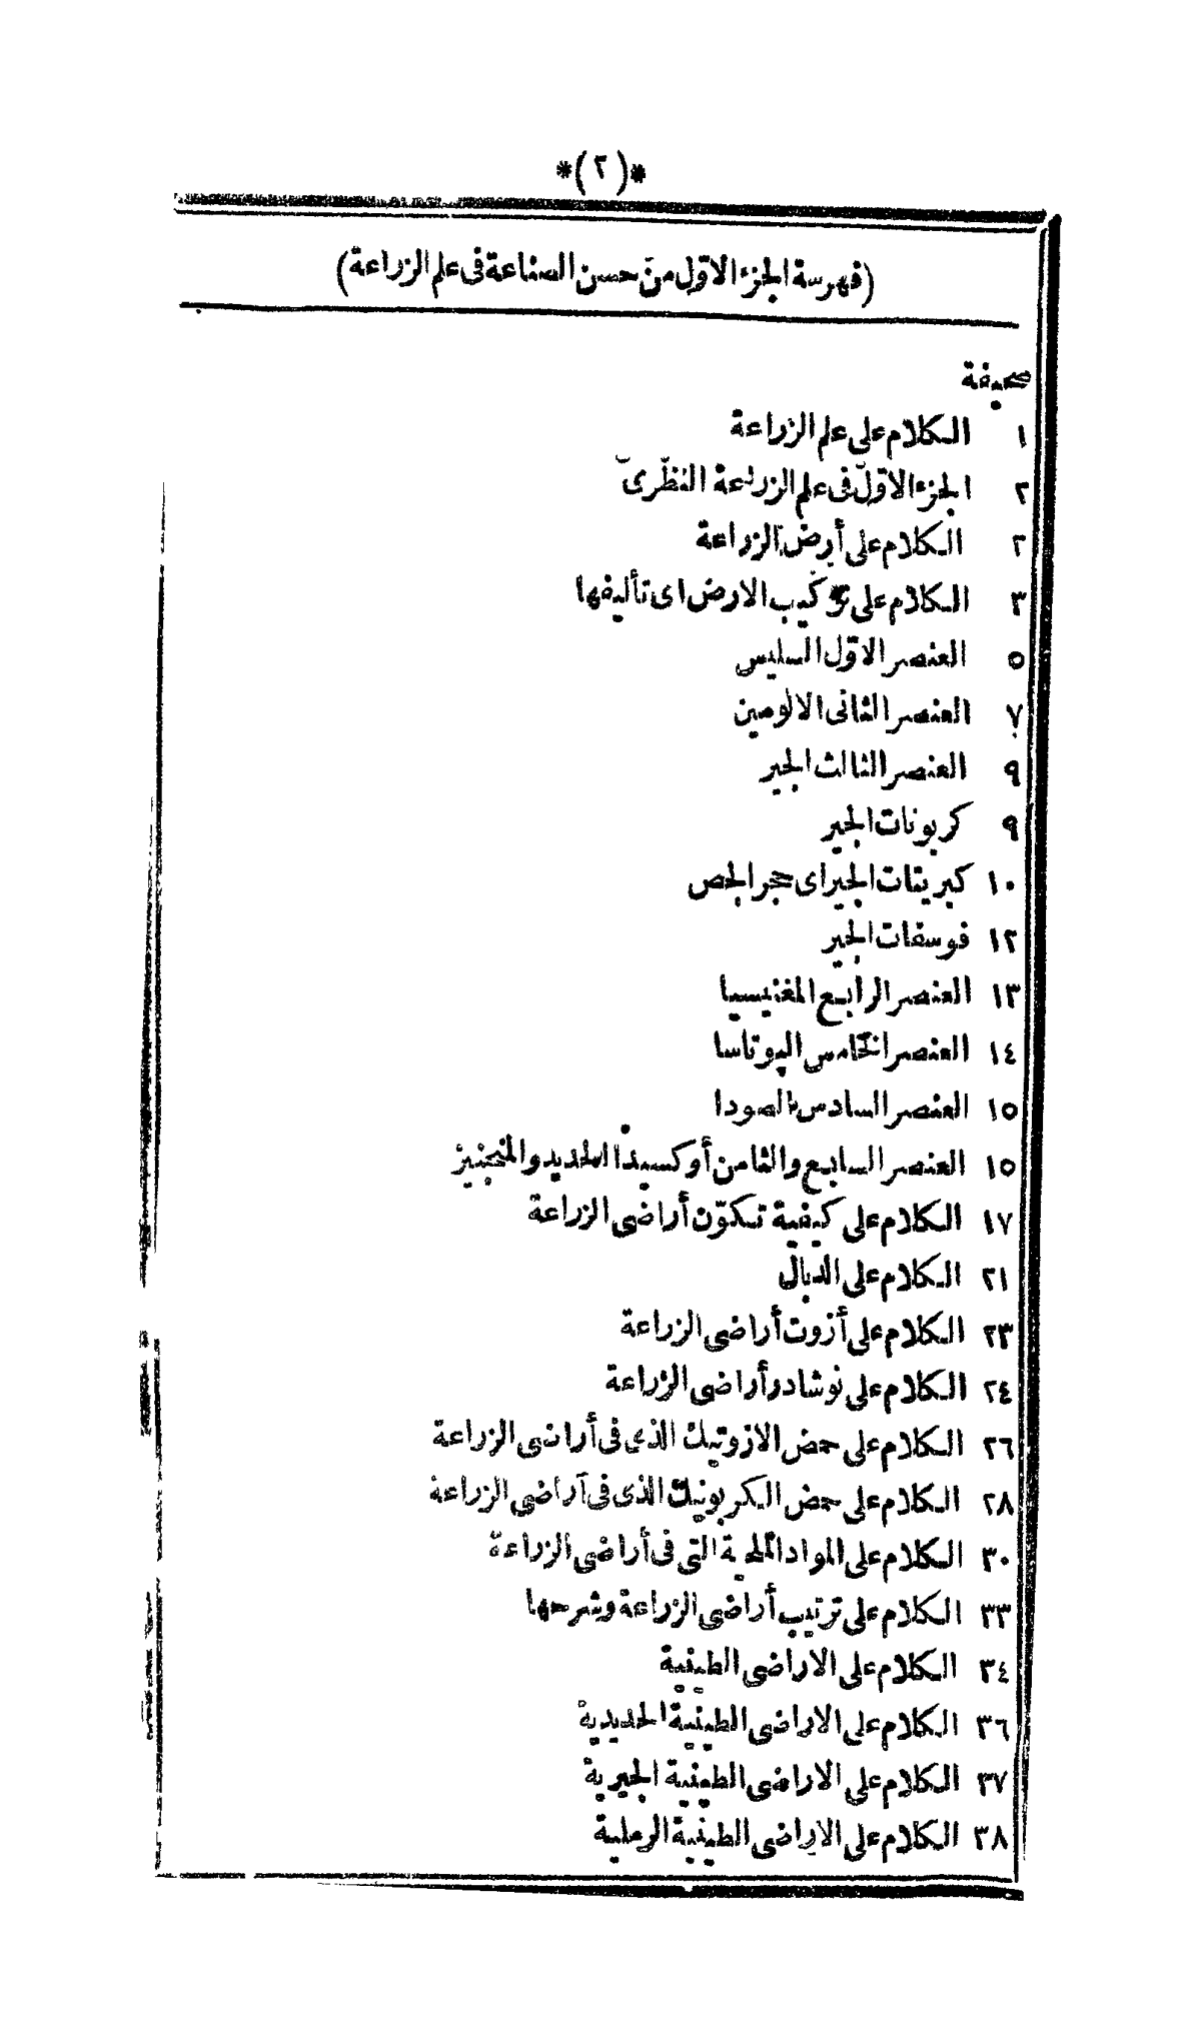 *(٢)*
(فهرسة الجزء الاوّل من حسن الصناعة فى علم الزراعة)
صحيفة
١ الكلام على علم الزراعة
٢ الجزء الاوّل فى علم الزراعة النظرىّ
٢ الكلام على أرض الزراعة
٣ الكلام على تركيب الارض اى تأليفها
٥ العنصر الاوّل السليس
٧ العنصر الثانى الالومين
٩ العنصر الثالث الجير
٩ كربونات الجير
١٠ كبريتات الجير اى حجر الجص
١٢ فوسفات الجير
١٣ العنصر الرابع المغنيسيا
١٤ العنصر الخامس البوتاسا
١٥ العنصر السادس الصودا
١٥ العنصر السابع والثامن أوكسيدا الحديد والمنجنيز
١٧ الكلام على كيفية تكوّن أراضى الزراعة
٢١ الكلام على الدبال
٢٣ الكلام على أزوت أراضى الزراعة
٢٤ الكلام على نوشادر أراضى الزراعة
٢٦ الكلام على حمض الازوتيك الذى فى أراضى الزراعة
٢٨ الكلام على حمض الكربونيك الذى فى أراضى الزراعة
٣٠ الكلام على المواد الملحية التى فى أراضى الزراعة
٣٣ الكلام على ترتيب أراضى الزراعة وشرحها
٣٤ الكلام على الاراضى الطينية
٣٦ الكلام على الاراضى الطينية الحديدية
٣٧ الكلام على الاراضى الطينية الجيرية
٣٨ الكلام على الاراضى الطينية الرملية